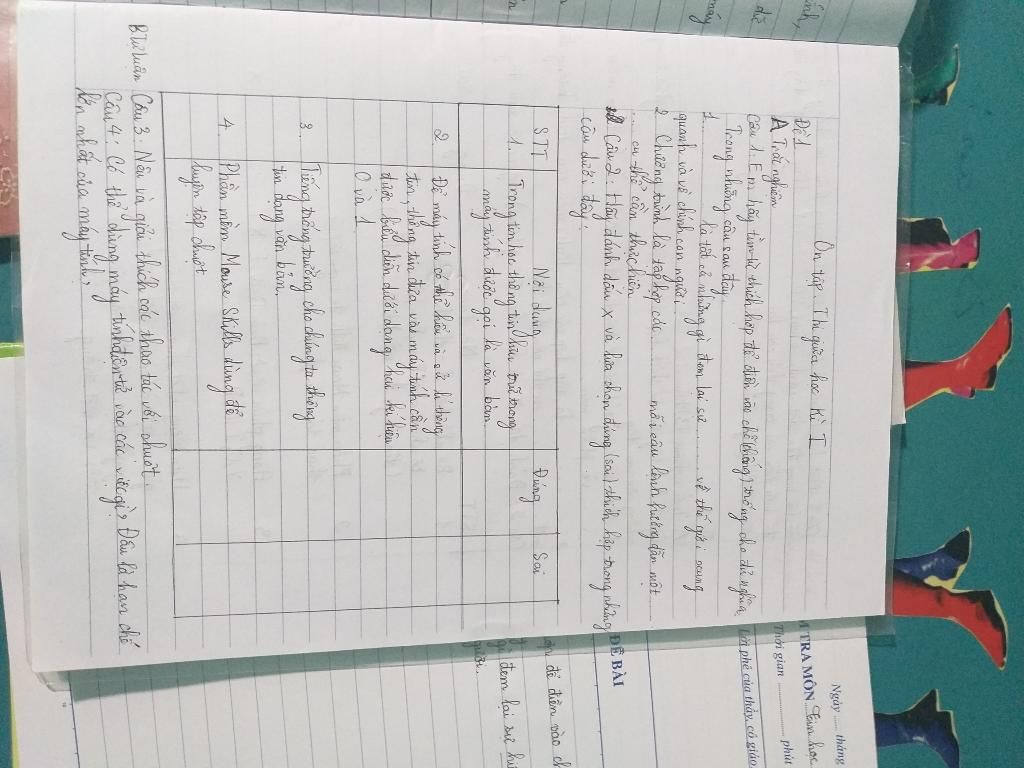 Ôn tập. Thi giữa học kì I
Đề 1
A Trắc nghiệm
Câu 1: Em hãy tìm từ thích hợp để điền vào chỗ (chấm) trống cho đủ nghĩa.
Trong những câu sau đây.
1. ........... là tất cả những gì đem lại sự ......... về thế giới xung
quanh và về chính con người.
2 Chương trình là tập hợp các ......... mỗi câu lệnh hướng dẫn một
.... cụ thể cần thực hiện
Câu 2: Hãy đánh dấu x và lựa chọn đúng (sai) thích hợp trong những
câu dưới đây.
STT Nội dung Đúng Sai
1. Trong tin học thông tin lưu trữ trong
máy tính được gọi là văn bản.
2. Để máy tính có thể hiểu và xử lí thông
tin, thông tin đưa vào máy tính cần
được biểu diễn dưới dạng hai kí hiệu
0 và 1
3. Tiếng trống trường cho chúng ta thông
tin dạng văn bản.
4. Phần mềm Mouse Skills dùng để
luyện tập chuột
B Tự luận Câu 3: Nêu và giải thích các thao tác với chuột.
Câu 4: Có thể dùng máy tính điện tử vào các việc gì? Đâu là hạn chế
lớn nhất của máy tính,
Ngày ..... tháng
TRA MÔN Tin học
Thời gian ............ phút
Lời phê của thầy, cô giáo
ĐỀ BÀI
để điền vào
gì đem lại sự